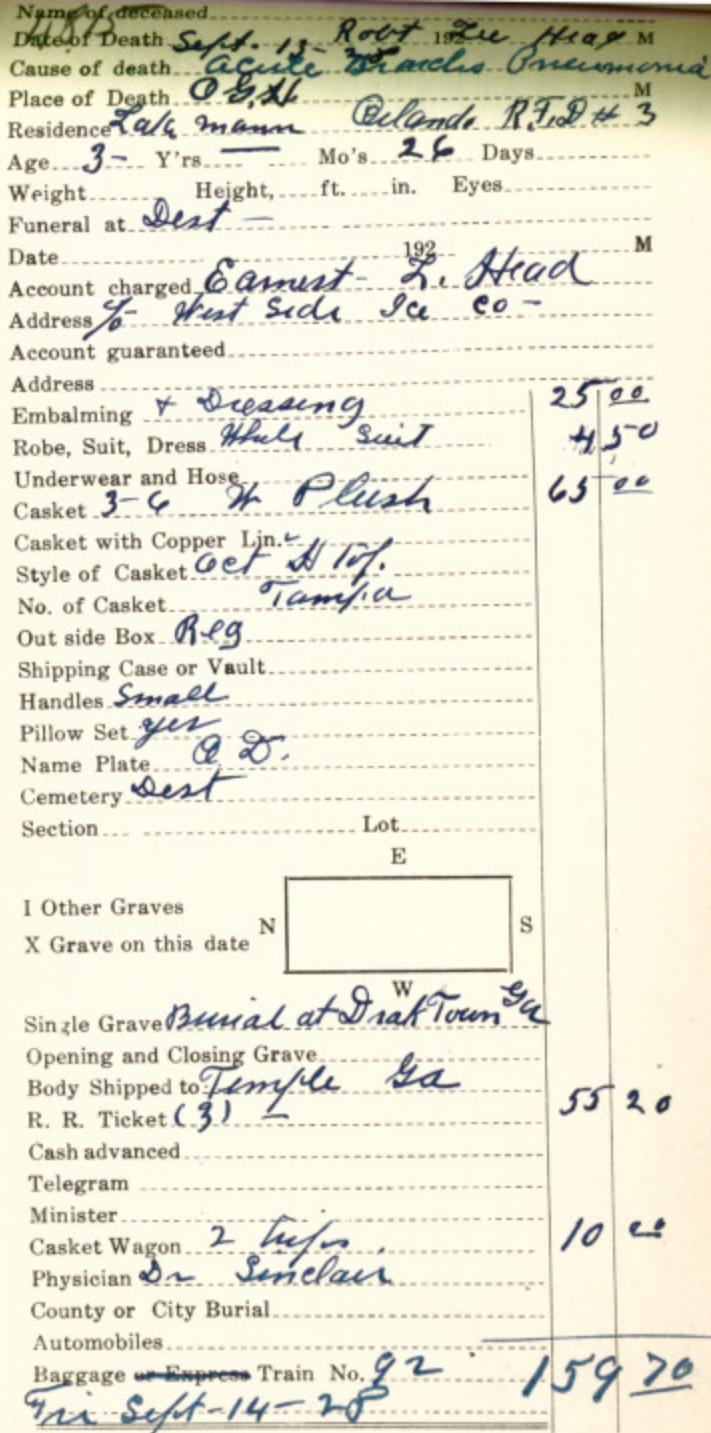 Name of deceased
Date of Death Sept. 13- Robt 192 Lee Head M
Cause of death acute Broncho Pneumonia
Place of Death O G H M
Residence Lake mann Orlando R.F.D # 3
Age 3- Y'rs — Mo's 26 Days
Weight Height, ft. in. Eyes
Funeral at Dest —
Date 192 M
Account charged Earnest- L. Head
Address c/o West Side Ice co -
Account guaranteed
Address
Embalming + Dressing 25 00
Robe, Suit, Dress White Suit 4 50
Underwear and Hose
Casket 3-6 W Plush 65 00
Casket with Copper Lin.
Style of Casket Oct H Top.
No. of Casket Tampa
Out side Box Reg
Shipping Case or Vault
Handles Small
Pillow Set yes
Name Plate O D.
Cemetery Dest
Section Lot
E
I Other Graves
N S
X Grave on this date
W
Single Grave Burial at Drak Town Ga
Opening and Closing Grave
Body Shipped to Temple Ga
R. R. Ticket (3) — 55 20
Cash advanced
Telegram
Minister
Casket Wagon 2 trips. 10 00
Physician Dr Sinclair
County or City Burial
Automobiles
Baggage or Express Train No. 92 159 70
Fri Sept-14-28